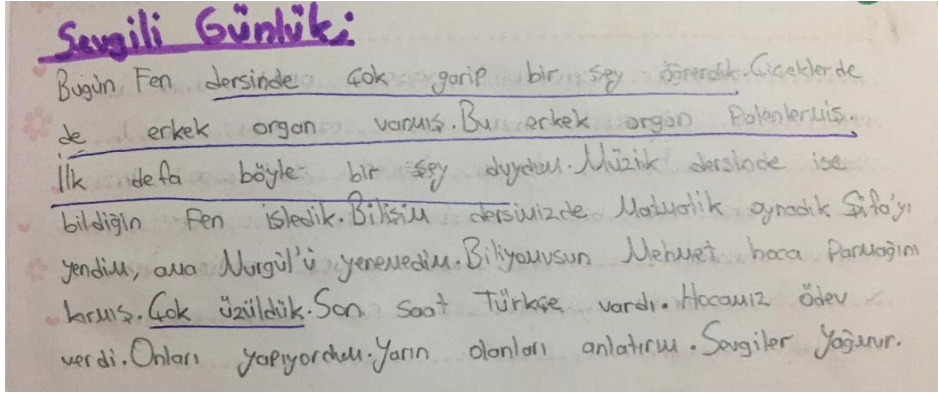 Sevgili Günlük;
Bugün Fen dersinde çok garip bir şey öğrendik. Çiçeklerde
de erkek organ varmış. Bu erkek organ Polenlermiş.
İlk defa böyle bir şey duydum. Müzik dersinde ise
bildiğin Fen işledik. Bilişim dersimizde Matmatik oynadık Şifa'yı
yendim, ama Nurgül'ü yenemedim. Biliyomusun Mehmet hoca Parmağını
kırmış. Çok üzüldük. Son saat Türkçe vardı. Hocamız ödev
verdi. Onları yapıyordum. Yarın olanları anlatırım. Sevgiler Yağmur.